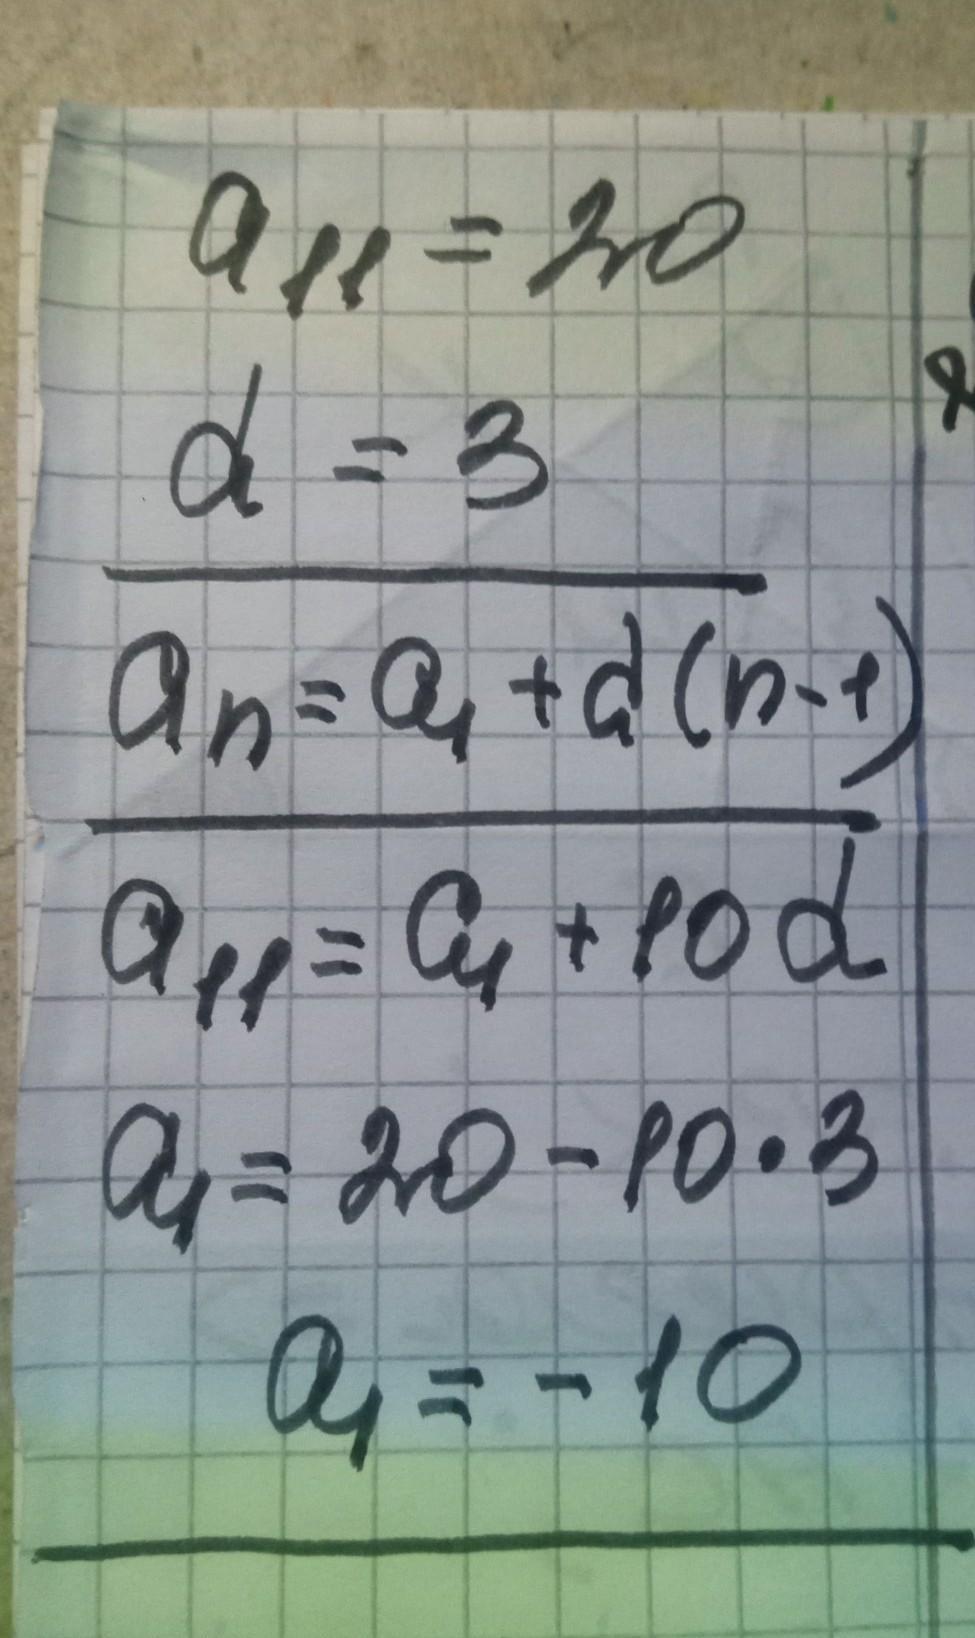 a₁₁ = 20
d = 3
aₙ = a₁ + d(n-1)
a₁₁ = a₁ + 10d
a₁ = 20 - 10·3
a₁ = -10